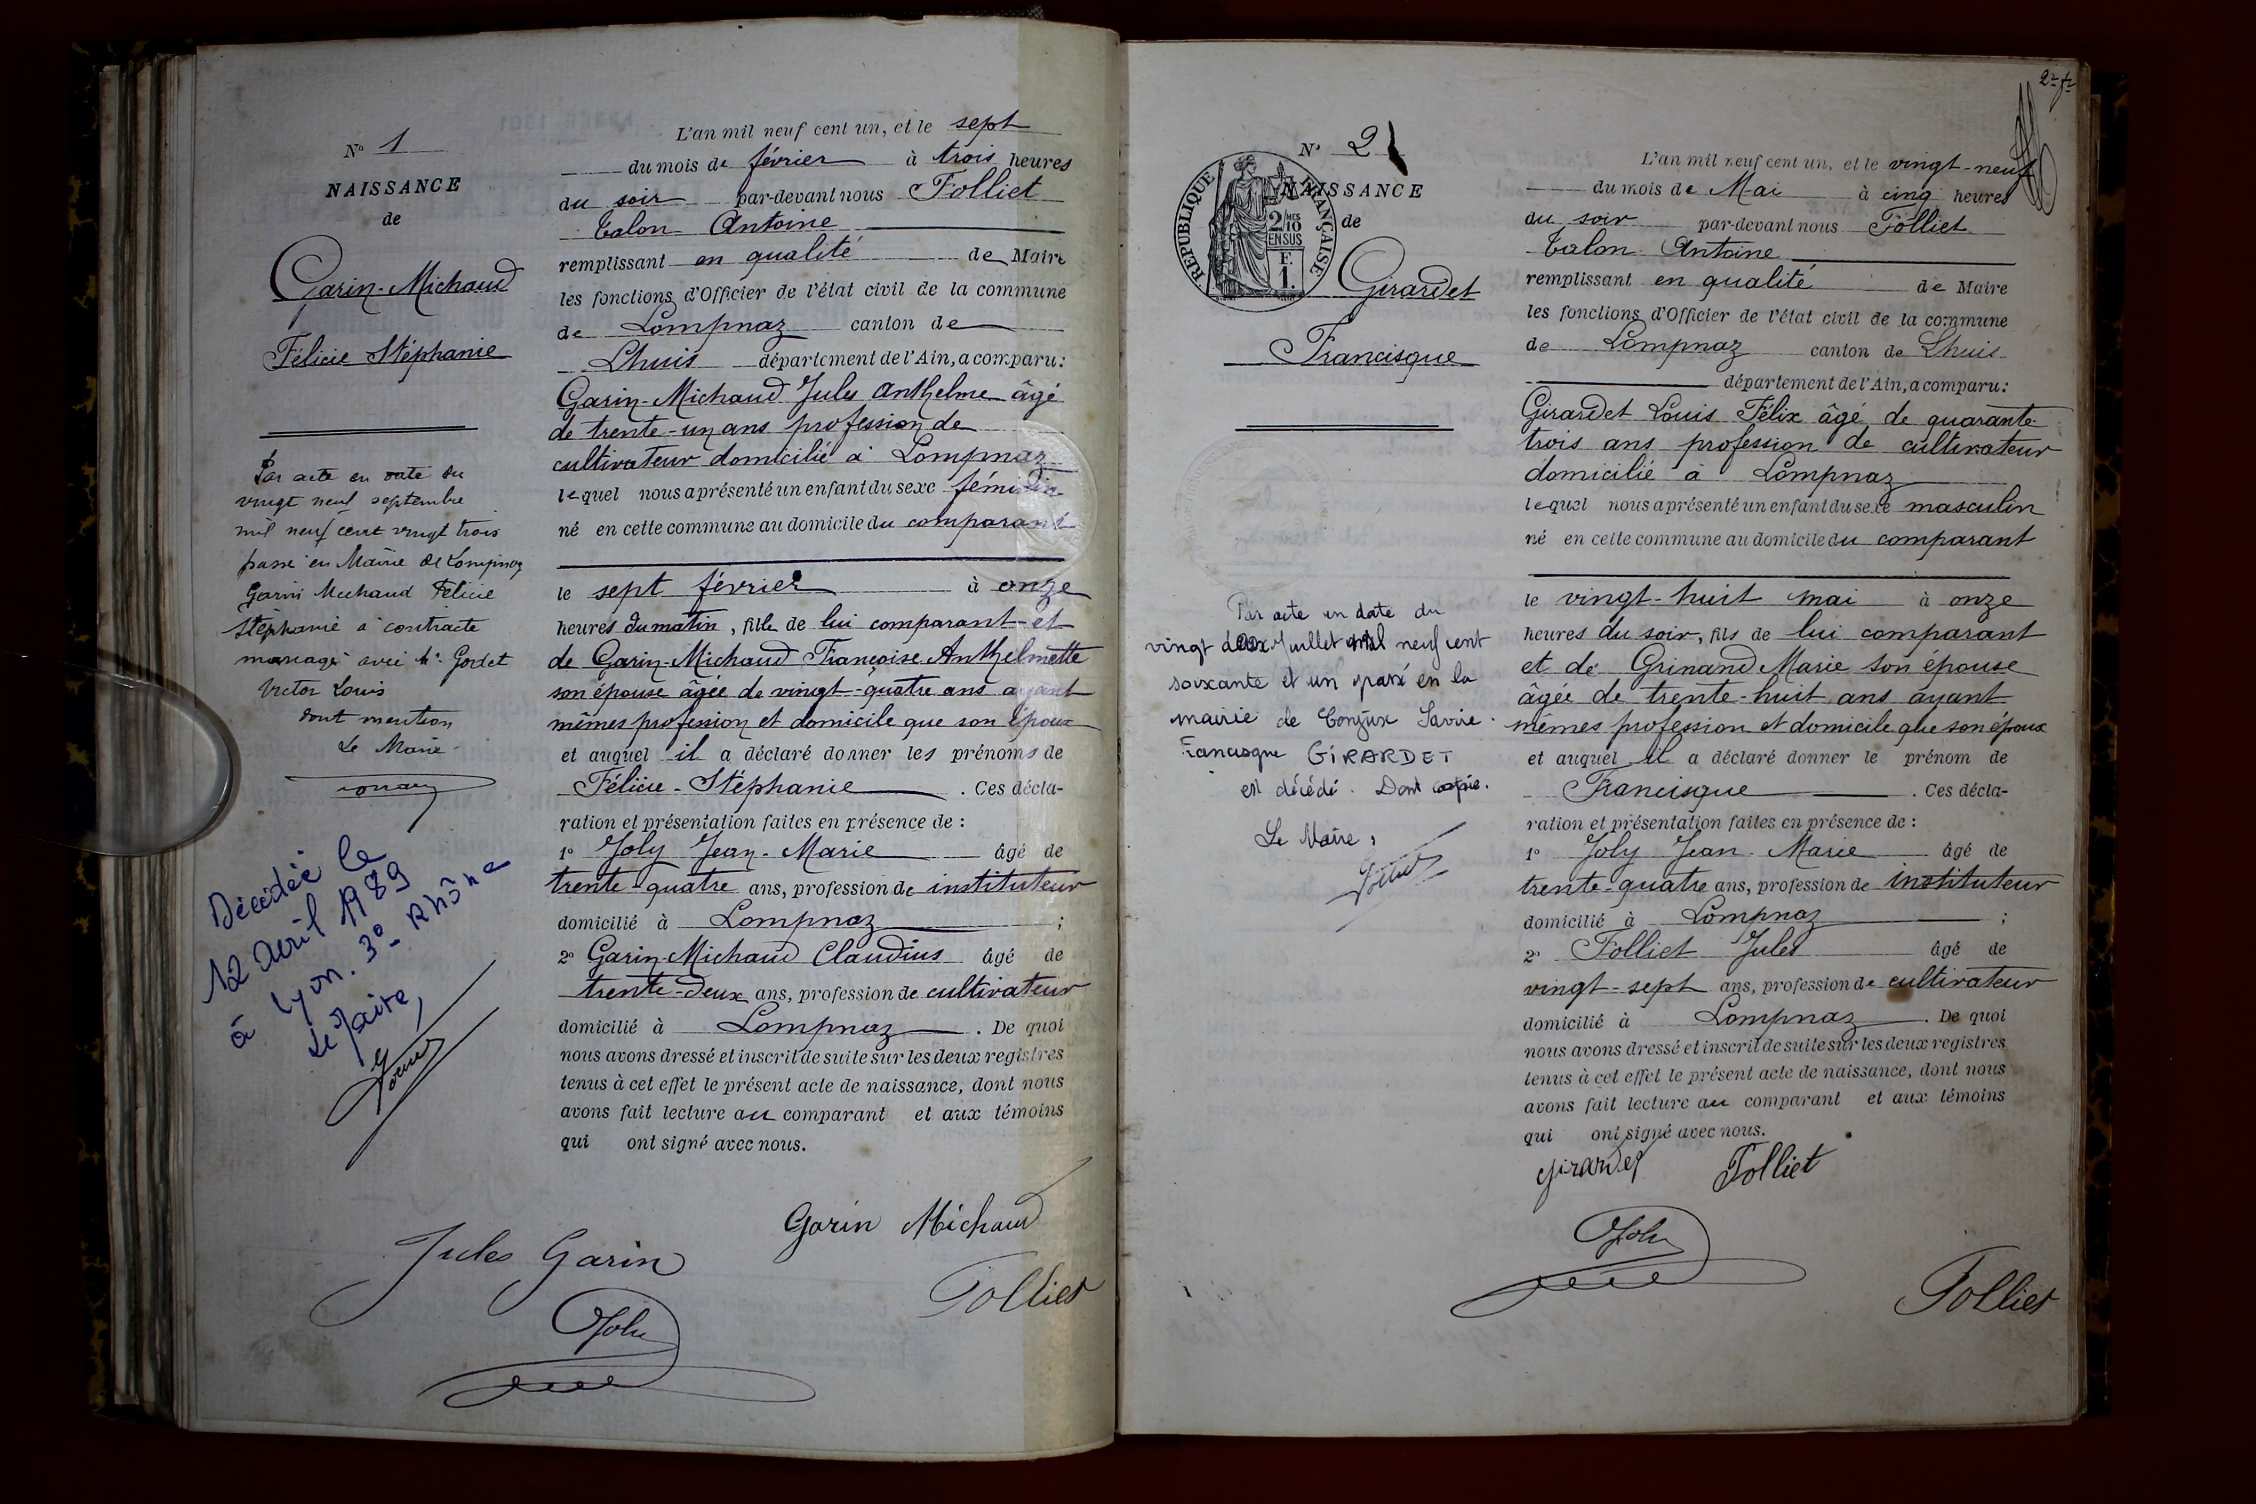 N° 1
NAISSANCE
de
Garin-Michaud
Félicie Stéphanie
Par acte en date du
vingt neuf septembre
mil neuf cent vingt trois
passé en Mairie de Lompnaz
Garin Michaud Félicie
Stéphanie a contracté
mariage avec Mr. Godet
Victor Louis
dont mention
Le Maire
Décédée le
12 avril 1989
à Lyon. 3e Rhône
Le Maire,
L'an mil neuf cent un, et le sept
du mois de février à trois heures
du soir par-devant nous Folliet
Talon Antoine
remplissant en qualité de Maire
les fonctions d'Officier de l'état civil de la commune
de Lompnaz canton de
Lhuis département de l'Ain, a comparu:
Garin-Michaud Jules Anthelme âgé
de trente-un ans profession de
cultivateur domicilié à Lompnaz
lequel nous a présenté un enfant du sexe féminin
né en cette commune au domicile du comparant
le sept février à onze
heures du matin, fille de lui comparant et
de Garin-Michaud Françoise Anthelmette
son épouse âgée de vingt-quatre ans ayant
mêmes profession et domicile que son époux
et auquel il a déclaré donner les prénoms de
Félicie-Stéphanie. Ces décla-
ration et présentation faites en présence de :
1° Joly Jean-Marie âgé de
trente-quatre ans, profession de instituteur
domicilié à Lompnaz ;
2° Garin-Michaud Claudius âgé de
trente-deux ans, profession de cultivateur
domicilié à Lompnaz. De quoi
nous avons dressé et inscrit de suite sur les deux registres
tenus à cet effet le présent acte de naissance, dont nous
avons fait lecture au comparant et aux témoins
qui ont signé avec nous.
Garin Michaud
Jules Garin
Folliet
Joly
2e fe
N° 2
RÉPUBLIQUE FRANÇAISE
2/10MES
EN SUS
F.
1.
NAISSANCE
de
Girardet
Francisque
Par acte en date du
vingt deux Juillet mil neuf cent
soixante et un passé en la
mairie de Conjux Savoie.
Francisque GIRARDET
est décédé. Dont copie.
Le Maire :
L'an mil neuf cent un, et le vingt-neuf
du mois de Mai à cinq heures
du soir par-devant nous Folliet
Talon Antoine
remplissant en qualité de Maire
les fonctions d'Officier de l'état civil de la commune
de Lompnaz canton de Lhuis
département de l'Ain, a comparu:
Girardet Louis Félix âgé de quarante-
trois ans profession de cultivateur
domicilié à Lompnaz
lequel nous a présenté un enfant du sexe masculin
né en cette commune au domicile du comparant
le vingt-huit mai à onze
heures du soir, fils de lui comparant
et de Grinand Marie son épouse
âgée de trente-huit ans ayant
mêmes profession et domicile que son époux
et auquel il a déclaré donner le prénom de
Francisque. Ces décla-
ration et présentation faites en présence de :
1° Joly Jean-Marie âgé de
trente-quatre ans, profession de instituteur
domicilié à Lompnaz ;
2° Folliet Jules âgé de
vingt-sept ans, profession de cultivateur
domicilié à Lompnaz. De quoi
nous avons dressé et inscrit de suite sur les deux registres
tenus à cet effet le présent acte de naissance, dont nous
avons fait lecture au comparant et aux témoins
qui ont signé avec nous.
Girardet Folliet
Joly
Folliet